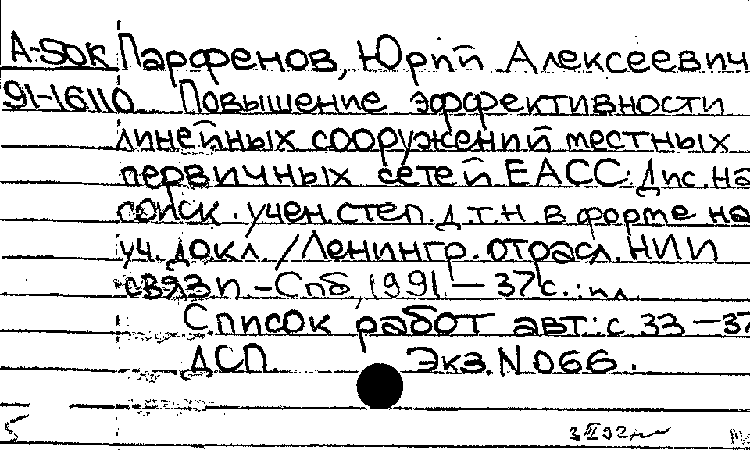 А-50к Парфенов, Юрий Алексеевич
91-16110 Повышение эффективности
линейных сооружений местных
первичных сетей ЕАСС: Дис. на
соиск. учен. степ. д.т.н в форме на
уч. докл. / Ленингр. отрасл. НИИ
связи. - Спб, 1991. - 37с.: ил.
Список работ авт.: с 33 - 37
ДСП. Экз. N 066.